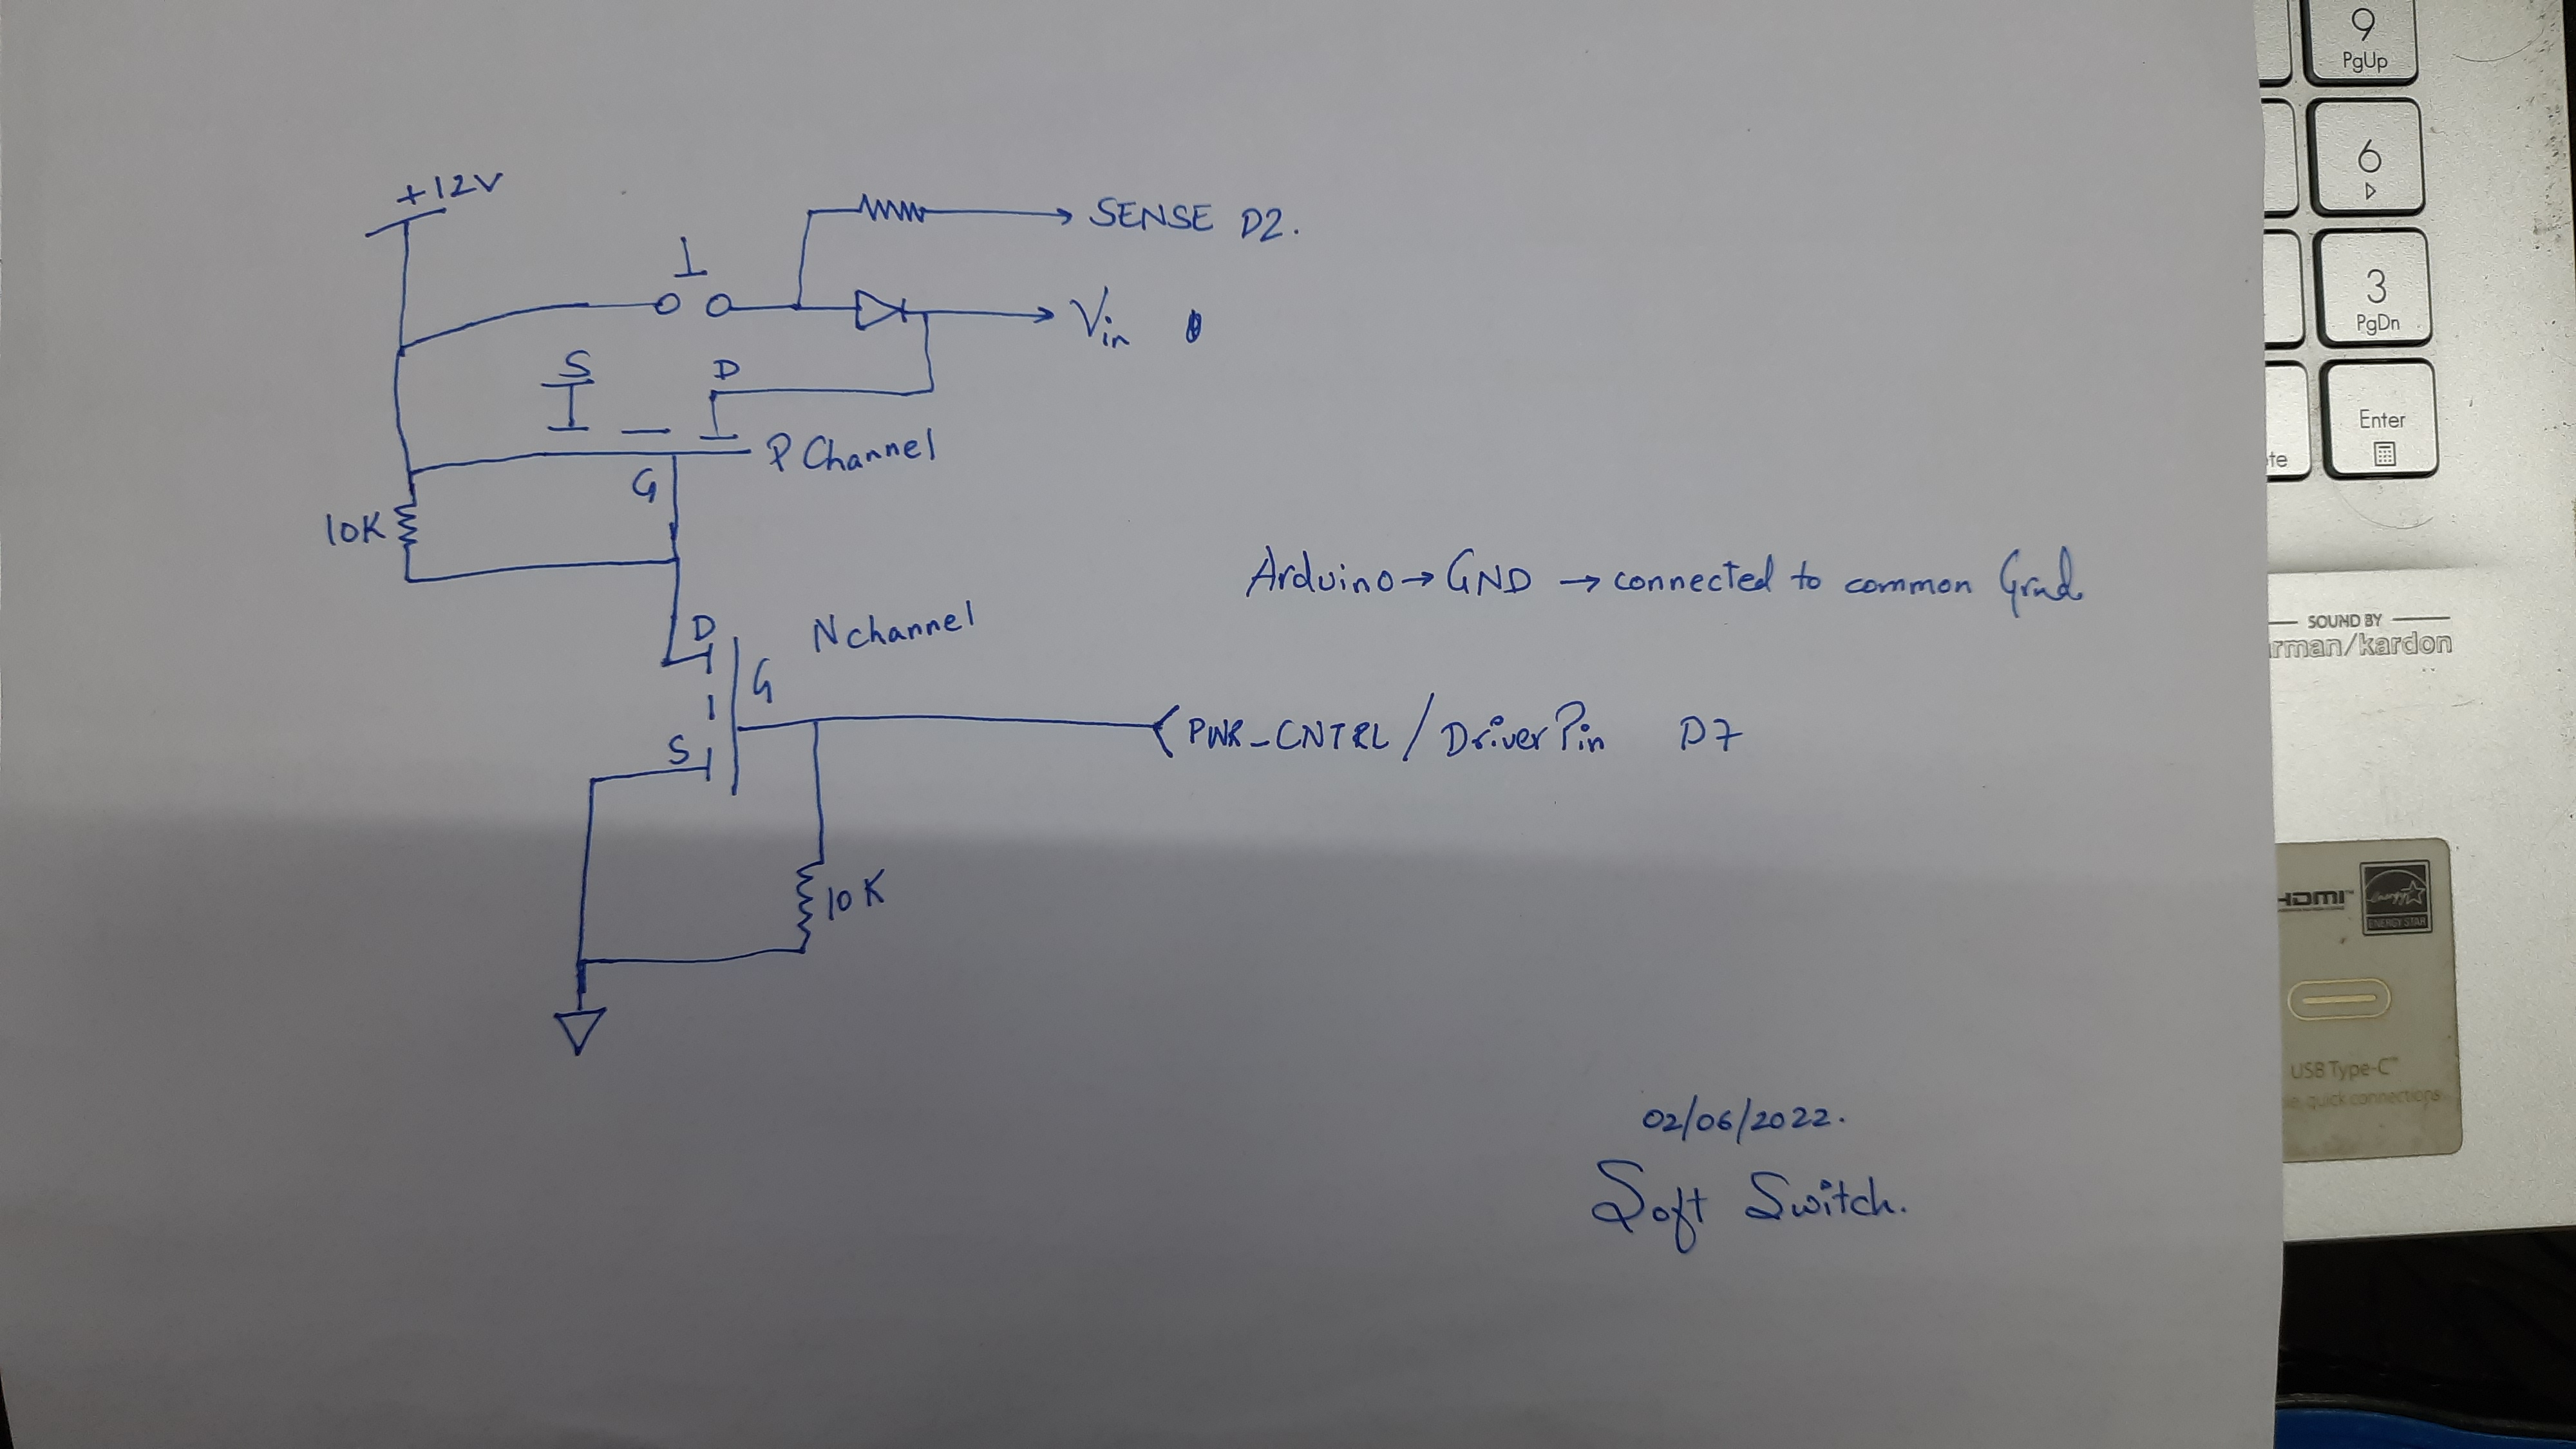 +12V
SENSE D2.
Vin
S
D
P Channel
G
10K
Arduino → GND → connected to common Grnd
D
N channel
G
S
PWR_CNTRL / Driver Pin D7
10K
02/06/2022.
Soft Switch.
9
PgUp
6
3
PgDn
Enter
SOUND BY
rman/kardon
HDMI
ENERGY STAR
USB Type-C™
quick connections